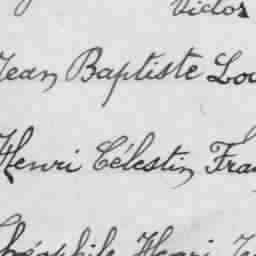 Victor
Jean Baptiste
Henri Célestin
Théophile Henri